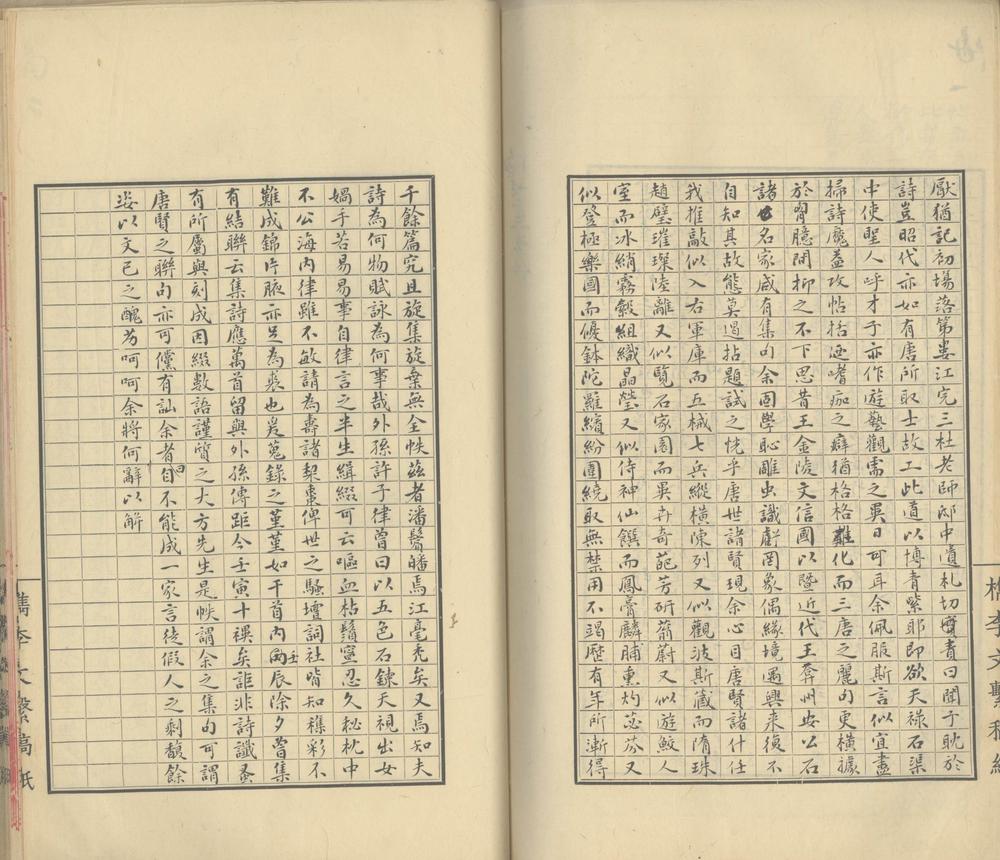 厭猶記初場落第婁江完三杜老師邸中遺札切責者曰聞子耽於
詩豈昭代亦如有唐所取士故工此道以博青紫耶即欲天祿石渠
中使聖人呼才子亦作遊藝觀需之異日可耳余佩服斯言似宜盡
掃詩魔益攻帖括迺嗜痂之癖猶格格難化而三唐之麗句更橫據
於胷臆間抑之不下思昔王金陵文信國以暨近代王弇州安公石
諸名家咸有集句余固學恥雕虫識虧罔象偶緣境遇興來復不
自知其故態莫遏拈題試之恍乎唐世諸賢現余心目唐賢諸什任
我推敲似入右軍庫而五械七兵縱橫陳列又似觀波斯藏而隋珠
趙璧璀璨陸離又似覽石家園而異卉奇葩芳研蓊蔚又似游鮫人
室而冰綃霧縠組織晶瑩又似侍神仙饌而鳳膏麟脯熏灼苾芬又
似登極樂國而優鉢陀羅繽紛圍繞取無禁用不竭歷有年所漸得
千餘篇究且旋集旋棄無全帙茲者潘鬢皤焉江毫禿矣又焉知夫
詩為何物賦詠為何事哉外孫許子律曾曰以五色石鍊天視出女
媧手若易易事自律言之半生緝綴可云嘔血枯鬚寧忍久秘枕中
不公海內律雖不敏請為壽諸棃棗俾世之騷壇詞社皆知穕彩不
難成錦片腋亦足為裘也爰蒐錄之堇堇如干首內壬辰除夕曾集
有結聯云集詩應萬首留與外孫傳距今壬寅十禩矣詎非詩讖蚤
有所屬與刻成因綴數語謹質之大方先生是帙謂余之集句可謂
唐賢之聯句亦可儻有訕余者曰自不能成一家言徒假人之剩馥餘
姿以文己之醜為呵呵余將何辭以解
檇李文繫稿紙
檇李文繫稿紙